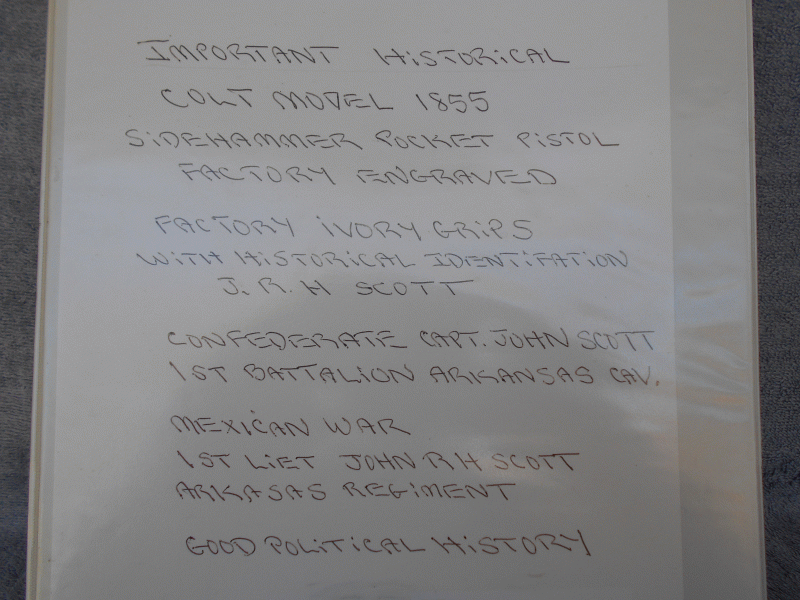 IMPORTANT HiSTORiCAL
COLT MODEL 1855
SiDEHAMMER POCKET PiSTOL
FACTORY ENGRAVED
FACTORY iVORY GRiPS
WiTH HiSTORiCAL IDENTiFATiON
J. R. H SCOTT
CONFEDERATE CAPT. JOHN SCOTT
1ST BATTALION ARKANSAS CAV.
MEXiCAN WAR
1ST LiET JOHN RH SCOTT
ARKASAS REGiMENT
GOOD POLiTiCAL HiSTORY